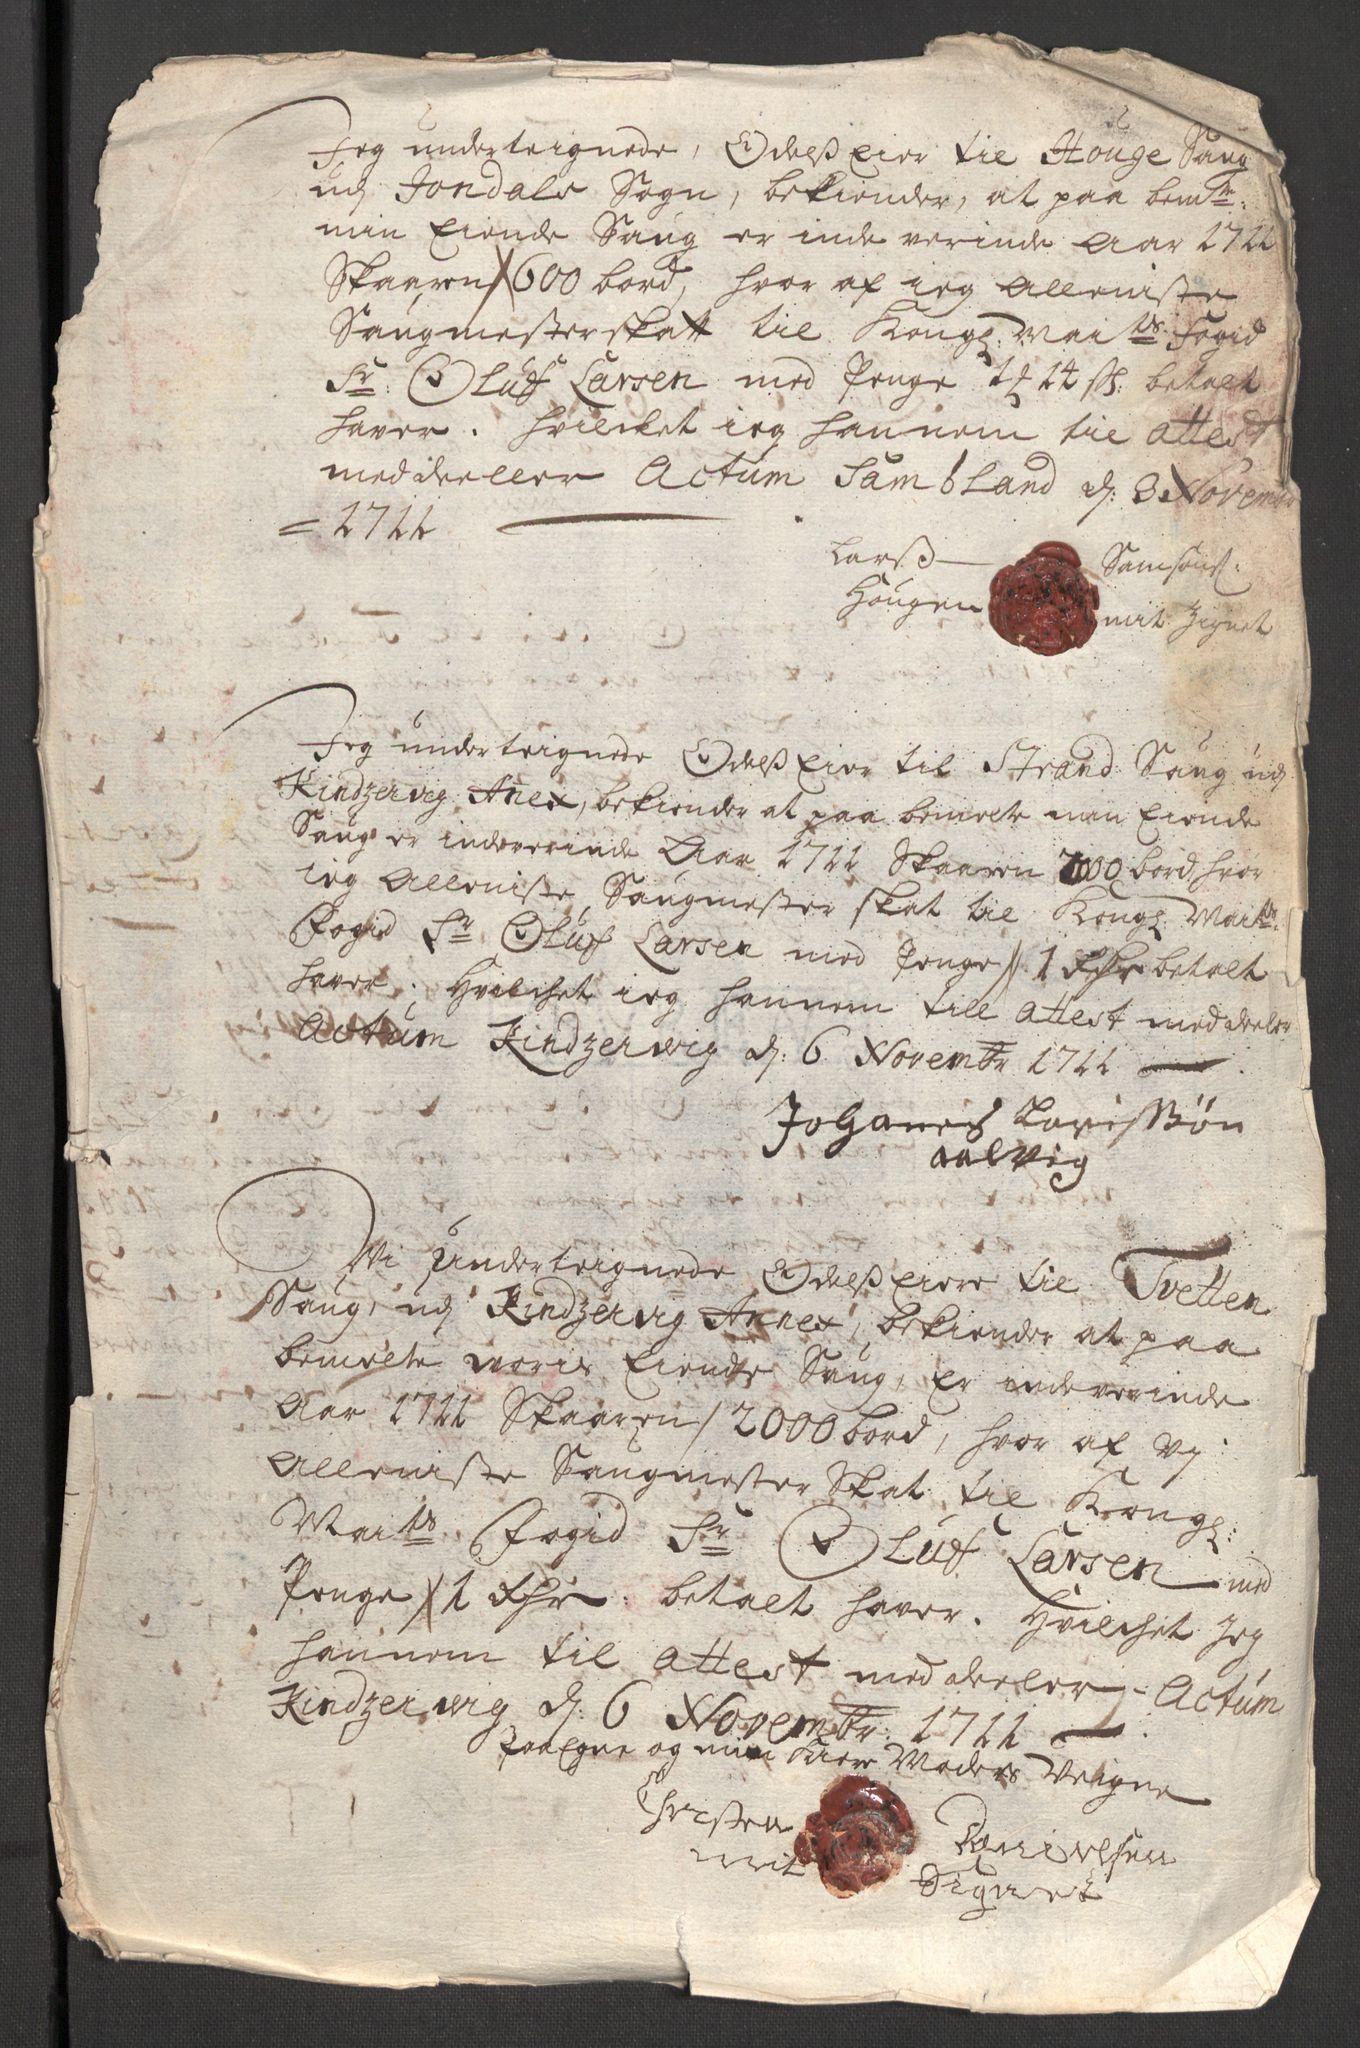 Jeg underteignede, Odelss Eier til Houge Saug
udj Jondals Sogn, bekiender, at paa bemte:
min Eiende Saug er inde verinde Aar 1711
Skaaren 600 bord, hvor af ieg Alleniste
Saugmesterskatt til Kongl: Maits Fogid
Sr: Oluff Larsen med Penge 14 ss: betalt
haver. Hvilcket ieg hannem til Attest
meddeeller Actum Samb Land d: 3 Novembr
= 1711
Larss Samsøns:
Hougen mit Zignet
Jeg underteignede Odelss Eier til Strand Saug udj
Kindzervig Anex, bekiender at paa bemelte min Eiende
Saug er indeverinde Aar 1711 Skaaren 2000 bord, hvor
ieg Alleniste Saugmester skat til Kongl Maits:
Fogid Sr Oluff Larsen med Penge // 1 Rdr betalt
haver. Hvilchet ieg hannem till Attest meddeeler
Actum Kindzervig d: 6 Novembr 1711
Johanes Larissøn
aalvig
Wi underteignede Odelss Eiere til Tvetten
Saug, udj Kindzervig Annex, bekiender at paa
bemelte woris Eiende Saug, er indeverinde
Aar 1711 Skaaren / 2000 bord, hvor af Vj
Alleniste Saugmester Skat til Kongl:
Maits Fogid Sr Oluff Larsen med
Penge // 1 Rdr. betalt haver. Hvilchet Jeg
hannem til Attest meddeeler - Actum
Kindzervig d: 6 Novembr: 1711
Paa Egne og min Kiere Moders Veigne
Christen Danielsen
mit Signet